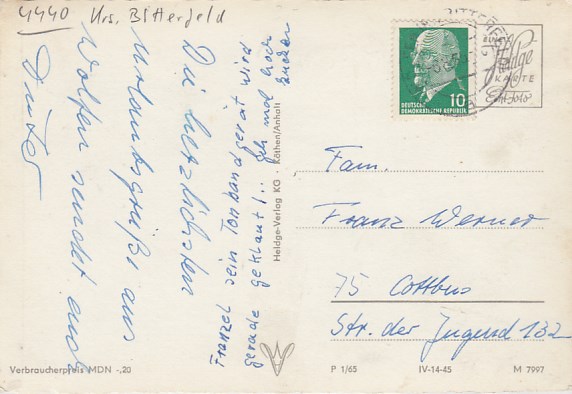 4440 Krs. Bitterfeld
Die herzlichsten
Urlaubsgrüße aus
Wolfen sendet euch
Dieter
Franzel sein Tonbandgerät wird
gerade geklaut!.. Geh mal hoch
gucken
Verbraucherpreis MDN -,20
Heldge-Verlag KG · Köthen/Anhalt
BITTERFELD
10
DEUTSCHE
DEMOKRATISCHE REPUBLIK
Heldge
KARTE
Echt Foto
Fam.
Franz Werner
75 Cottbus
Str. der Jugend 132
P 1/65 IV-14-45 M 7997